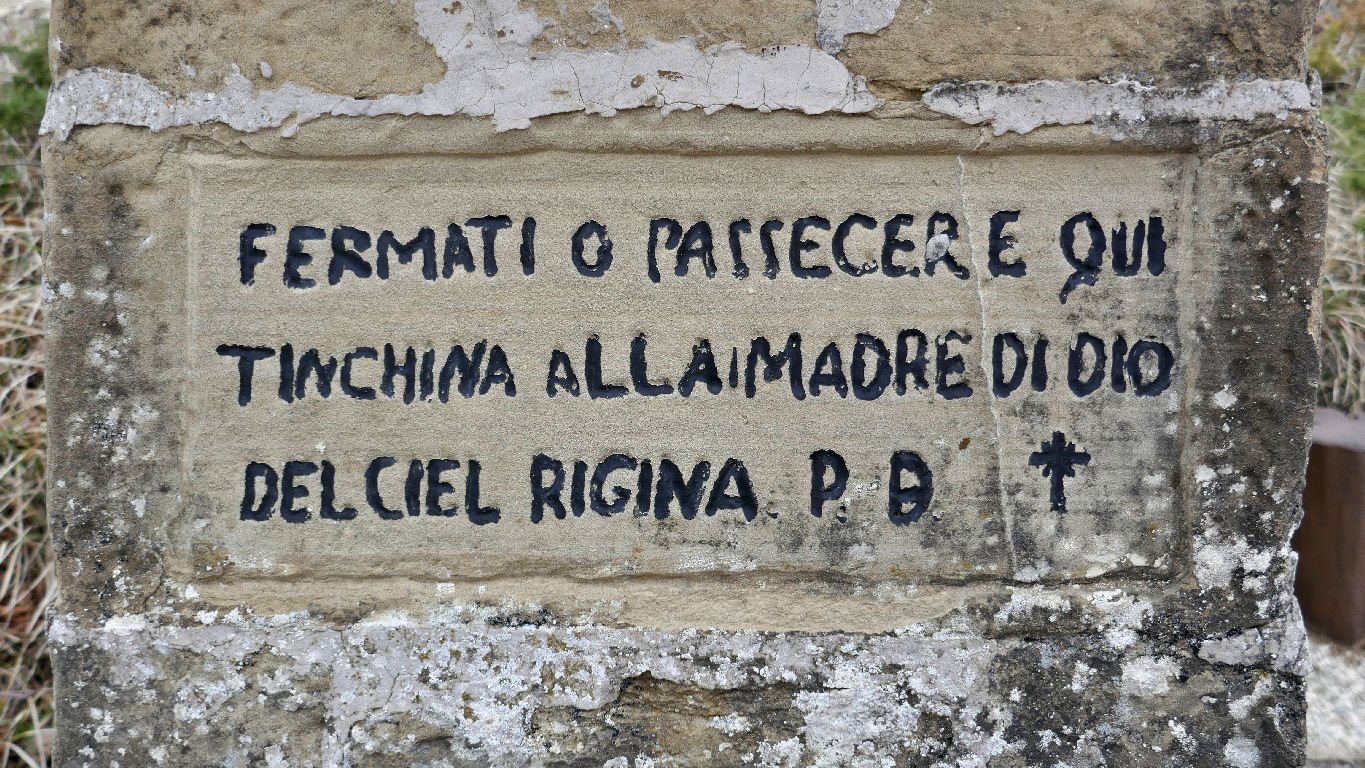 FERMATI O PASSECERE QUI
TINCHINA ALLA MADRE DI DIO
DEL CIEL RIGINA. P. B.